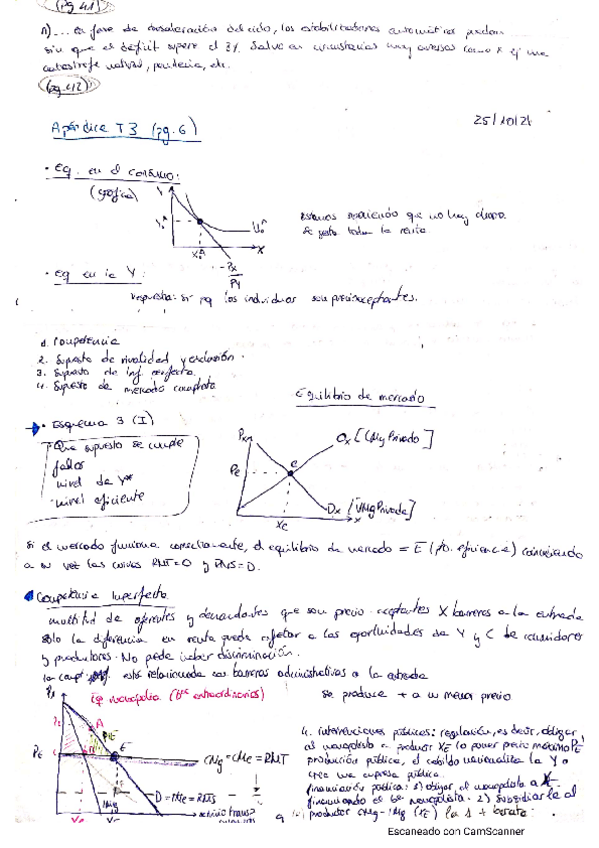 (pg 41)
n) ... en fase de desaceleración del ciclo, los estabilizadores automáticos puedan
sin que el déficit supere el 3%. Salvo en circunstancias muy adversas como x ej una
catástrofe natural, pandemia, etc.
(pg. 42)
25/10/21
Apéndice T3 (pg. 6)
· Eq. en el consumo:
(gráfica)
Y
X
Px
Py
Estamos asumiendo que no hay
Se gasta toda la renta
· Eq en la Y:
respuesta: sí pq los individuos son precioaceptantes.
1. Competencia
2. Supuesto de rivalidad y exclusión.
3. Supuesto de inf. perfecta.
4. Supuesto de mercado completo
Equilibrio de mercado
· Esquema 3 (I)
- Que supuesto se cumple
fallos
nivel de Y*
- nivel eficiente
Ox [CMg Privado]
PE
E
Dx [VMg Privada]
XE
x
Si el mercado funciona correctamente, el equilibrio de mercado = E (pto. eficiencia) coincidiendo
a su vez las curvas RMT=O y RMS=D.
Competencia Imperfecta
multitud de oferentes y demandantes que son precio-aceptantes X barreras a la entrada
solo la diferencia en renta puede afectar a las oportunidades de Y y C de consumidores
y productores. No puede haber discriminación.
la comp. está relacionada con barreras administrativas a la entrada
eq monopolio (Bº extraordinarios)
se produce + a un menor precio
A
PE
E
CMg = CMe = RMT
D = IMe = RMS
IMg
4. intervenciones públicas: regulación, es decir, obligar
al monopolista a producir XE (o poner precio máximo PE)
producción pública, el estado nacionaliza la Y o
crea una empresa pública.
financiación pública: 1) obligar al monopolista a
financiando el Bº monopolista. 2) Subsidiarle al
productor CMg - IMg (XE)
Escaneado con CamScanner